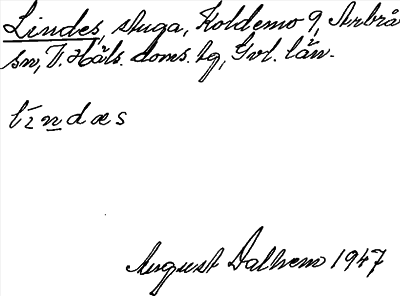 Lindes, stuga, Koldemo 9, Arbrå
sn, V. Häls. doms. tg, Gvl. län.
lìndæs
August Dalhem 1947